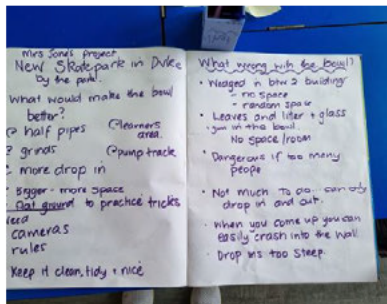 Mrs Jones project
New Skatepark in Duke
by the park.
What would make the bowl
better?
half pipes
learners
area.
grinds
pump track
more drop in
Bigger - more space
flat ground to practice tricks
cameras
rules
Keep it clean, tidy + nice
What wrong with the bowl?
• Wedged in btw 2 building
- no space
- random space
• Leaves and liter + glass
in the bowl.
No space/room
• Dangerous if too many
people
• Not much to do... can only
drop in and out.
• When you come up you can
easily crash into the wall
• Drop ins too steep.